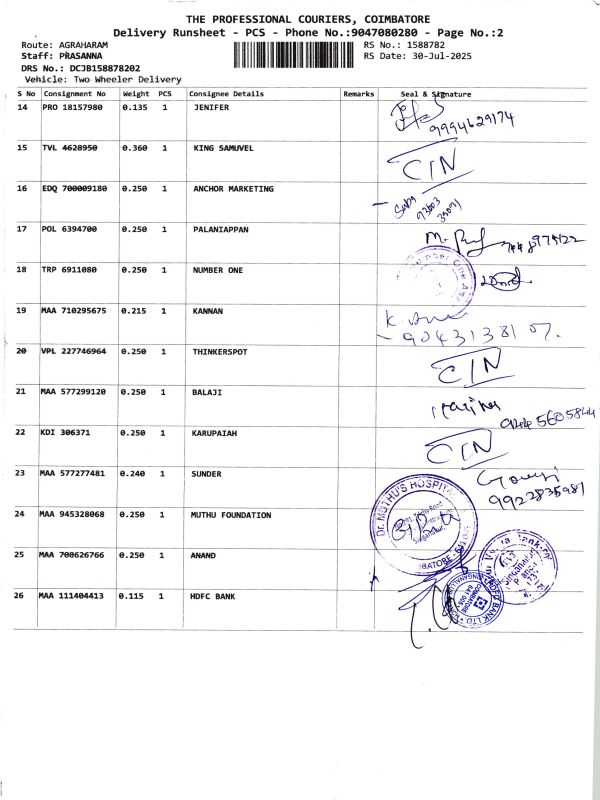 THE PROFESSIONAL COURIERS, COIMBATORE
Delivery Runsheet - PCS - Phone No.:9047080280 - Page No.:2
Route: AGRAHARAM
Staff: PRASANNA
DRS No.: DCJB158878202
Vehicle: Two Wheeler Delivery
RS No.: 1588782
RS Date: 30-Jul-2025
S No Consignment No Weight PCS Consignee Details Remarks Seal & Signature
14 PRO 18157980 0.135 1 JENIFER
9994629174
15 TVL 4628950 0.360 1 KING SAMUVEL
C/N
16 EDQ 700009180 0.250 1 ANCHOR MARKETING
17 POL 6394700 0.250 1 PALANIAPPAN
18 TRP 6911080 0.250 1 NUMBER ONE
19 MAA 710295675 0.215 1 KANNAN
9043138107.
20 VPL 227746964 0.250 1 THINKERSPOT
C/N
21 MAA 577299120 0.250 1 BALAJI
22 KDI 306371 0.250 1 KARUPAIAH
C/N
23 MAA 577277481 0.240 1 SUNDER
24 MAA 945328068 0.250 1 MUTHU FOUNDATION
Dr. MUTHU'S HOSPITAL
25 MAA 700626766 0.250 1 ANAND
26 MAA 111404413 0.115 1 HDFC BANK
HDFC BANK LTD